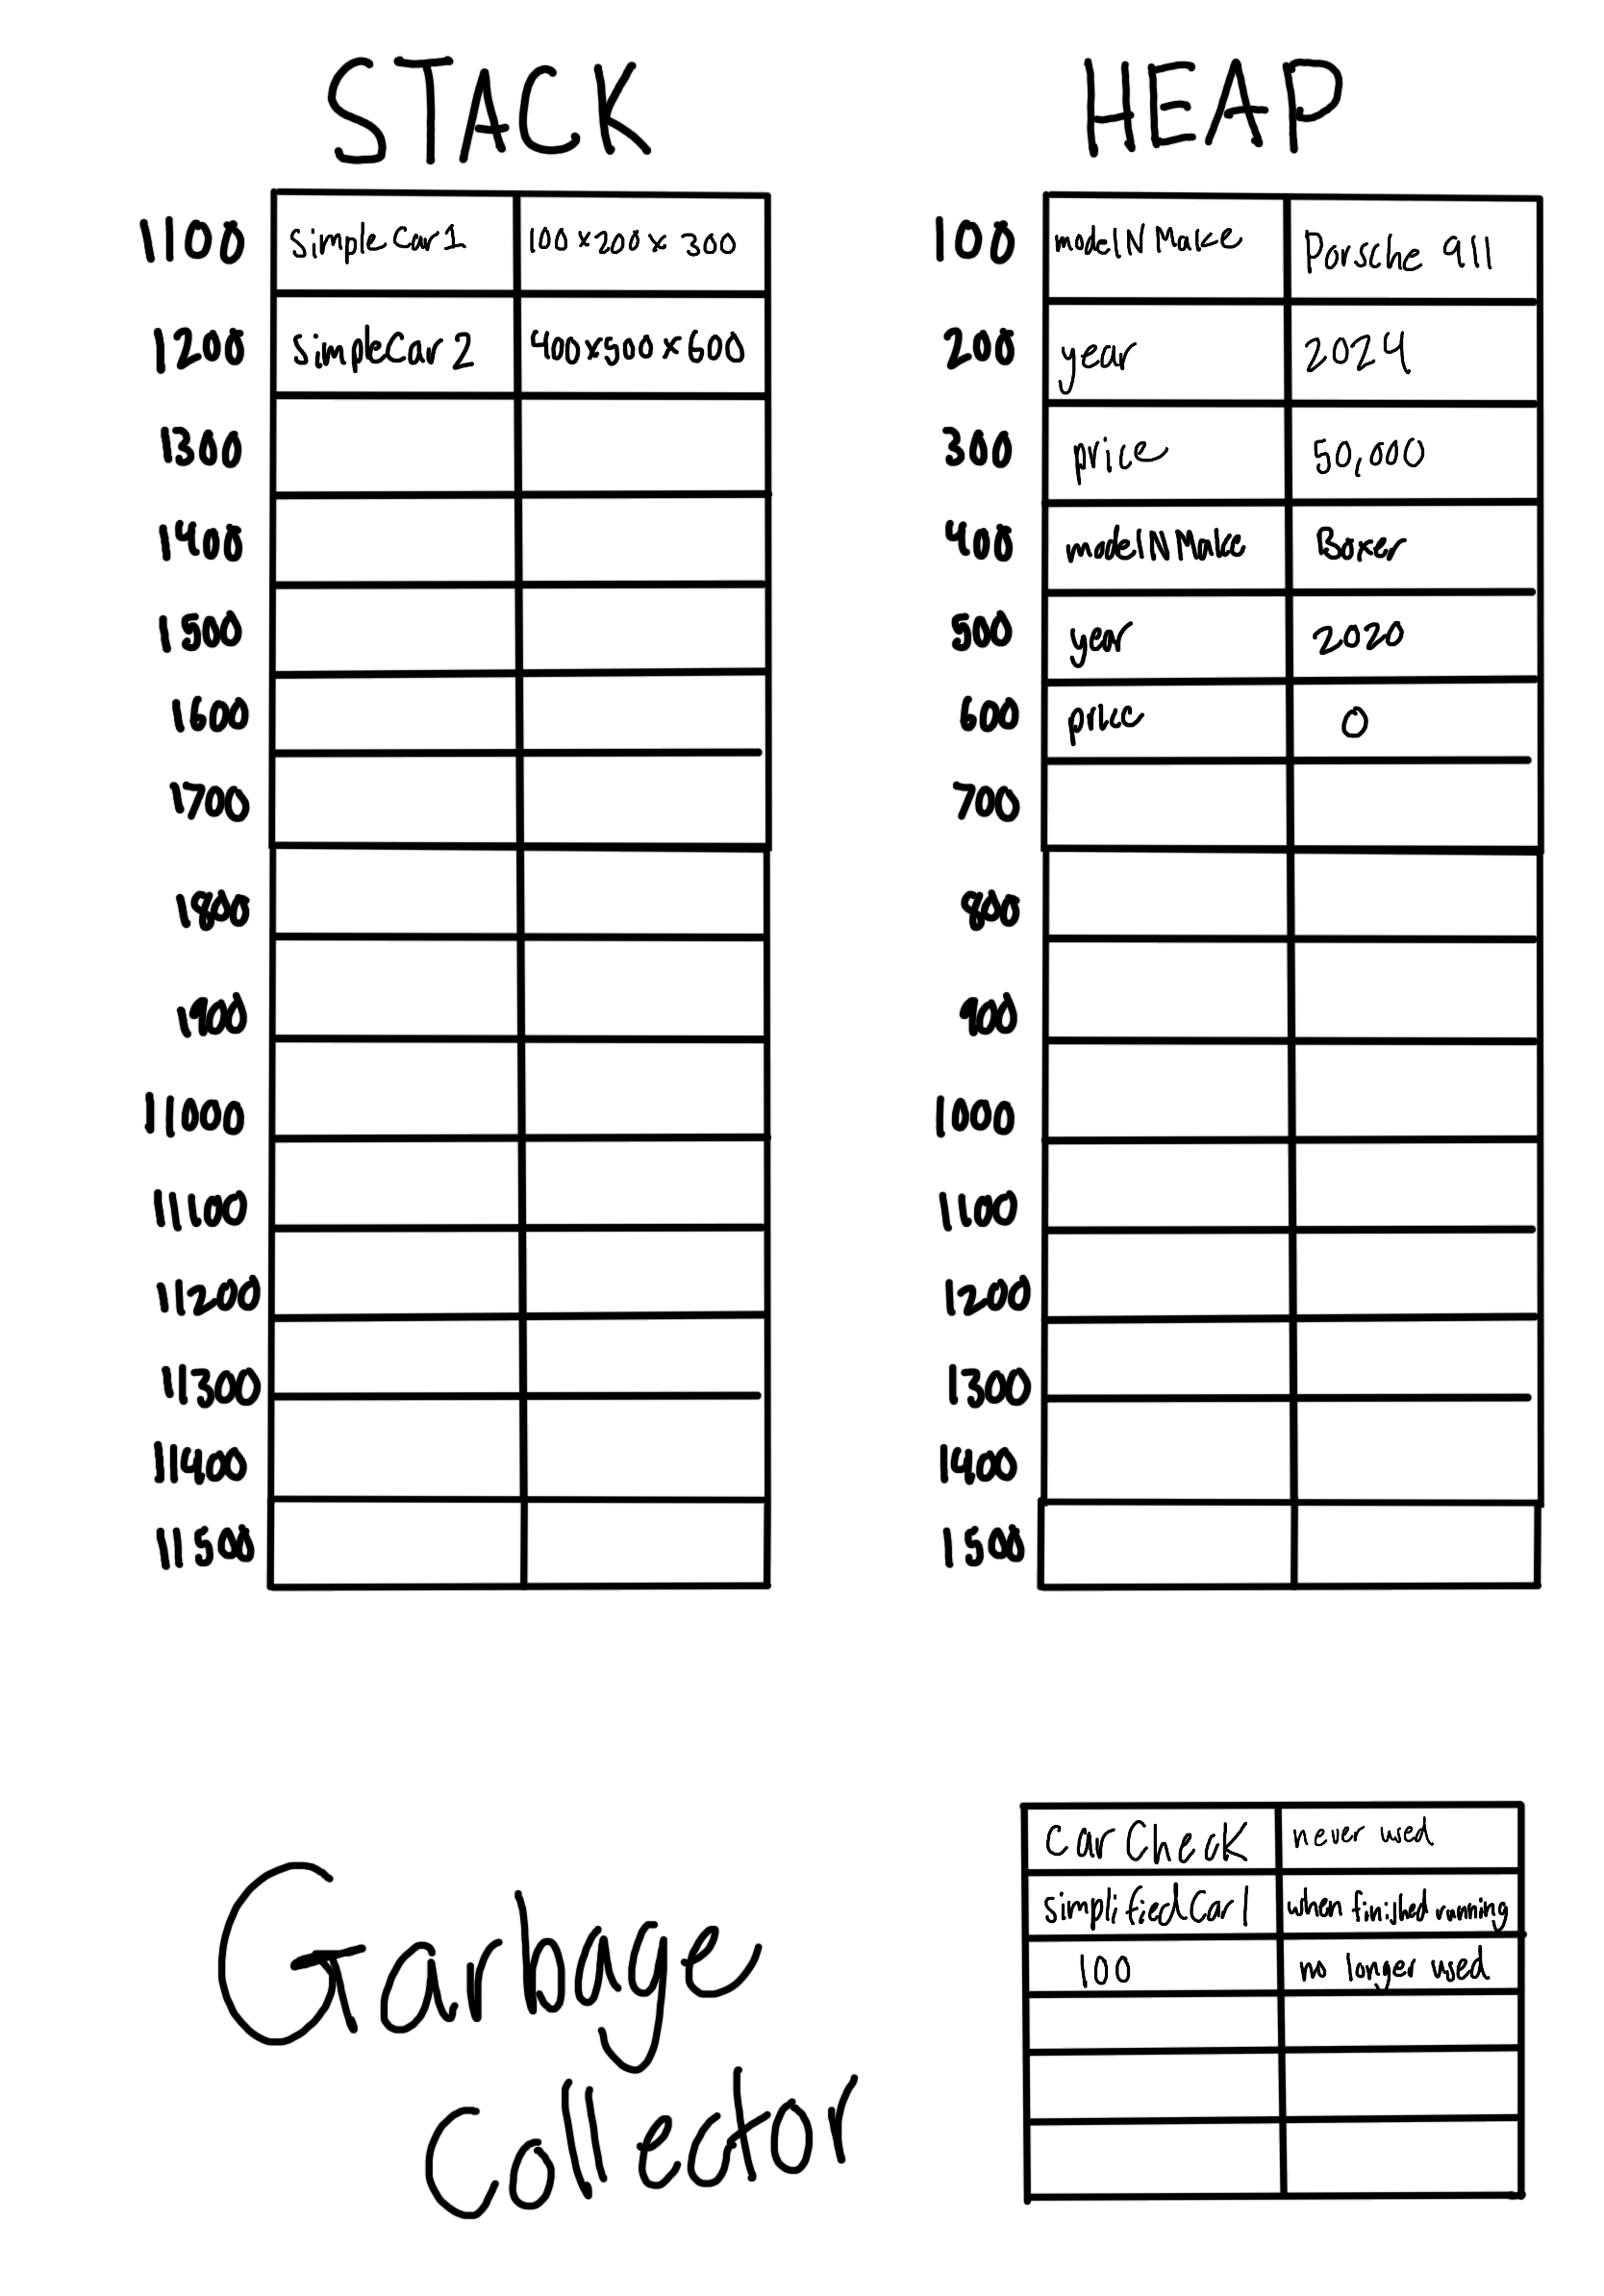 STACK
HEAP
1100 simpleCar1 100 x 200 x 300
1200 simpleCar2 400x500x600
1300
1400
1500
1600
1700
1800
1900
11000
11100
11200
11300
11400
11500
100 modelNMake Porsche 911
200 year 2024
300 price 50,000
400 modelNMake Boxer
500 year 2020
600 price 0
700
800
900
1000
1100
1200
1300
1400
1500
Garbage
Collector
CarCheck never used
simplifiedCar1 when finished running
100 no longer used